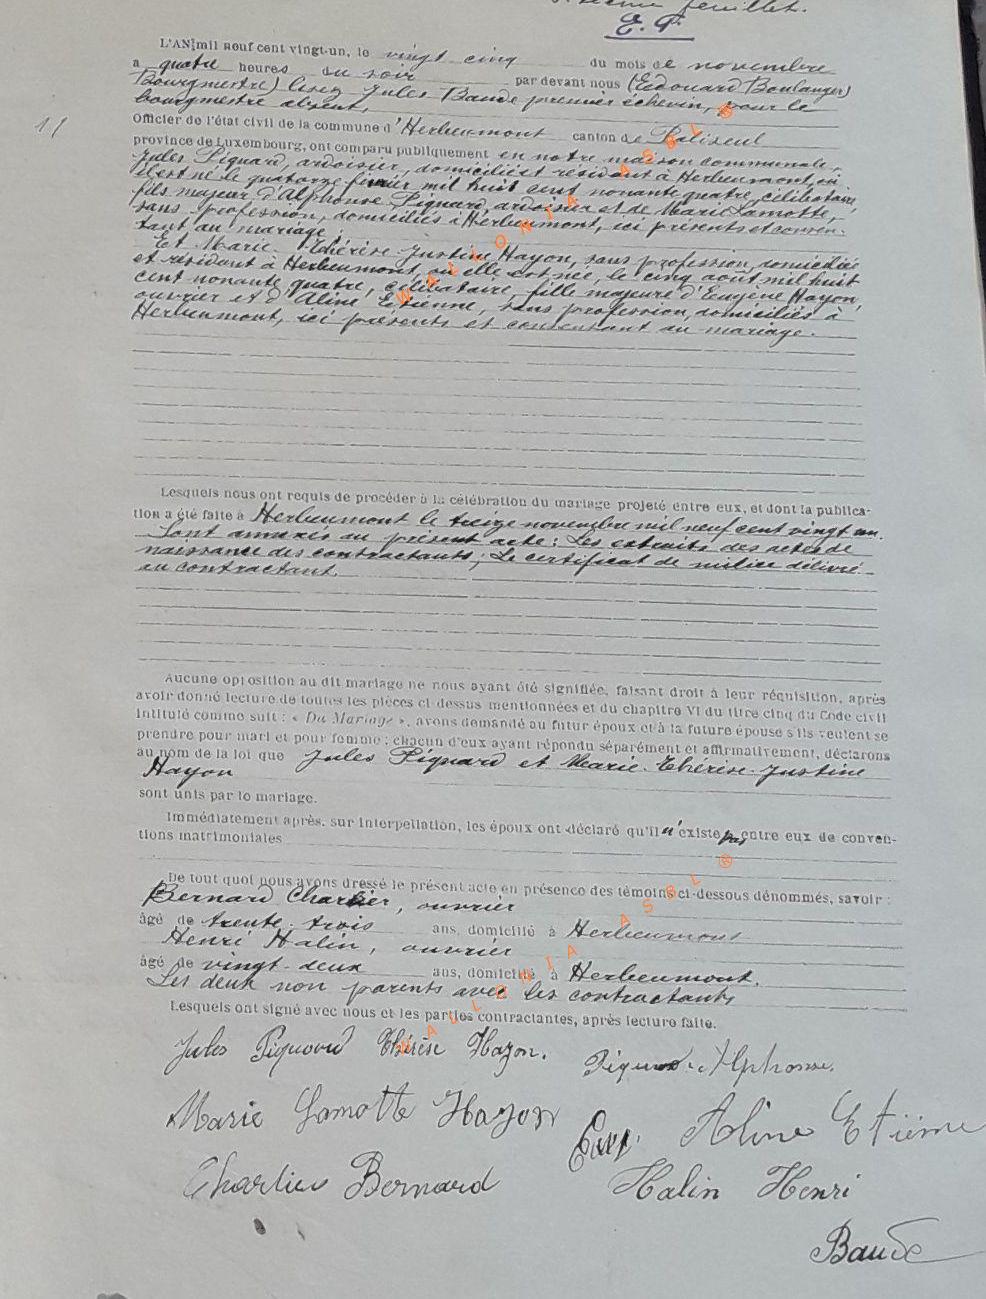 feuillet.
E. P.
L'AN mil neuf cent vingt-un, le vingt cinq du mois de novembre
a quatre heures du soir par devant nous (Edouard Boulanger
Bourgmestre) lisez Jules Baude premier échevin, pour le
bourgmestre absent,
11
Officier de l'état civil de la commune d'Herbeumont canton de Paliseul
province de Luxembourg, ont comparu publiquement en notre maison communale,
Jules Pignard, ardoisier, domicilié et résidant à Herbeumont, où
il est né le quatorze février mil huit cent nonante quatre, célibataire,
fils majeur d'Alphonse Pignard, ardoisier et de Marie Lamotte,
sans profession, domiciliés à Herbeumont, ici présents et consen-
tant au mariage.
Et Marie Thérèse Justine Hayon, sans profession, domiciliée
et résidant à Herbeumont, où elle est née, le cinq août mil huit
cent nonante quatre, célibataire, fille majeure d'Eugène Hayon,
ouvrier et d'Aline Etienne, sans profession, domiciliés à
Herbeumont, ici présents et consentant au mariage.
Lesquels nous ont requis de procéder à la célébration du mariage projeté entre eux, et dont la publica-
tion a été faite à Herbeumont le treize novembre mil neuf cent vingt un.
Sont annexés au présent acte: Les extraits des actes de
naissance des contractants; Le certificat de milice délivré
au contractant.
Aucune opposition au dit mariage ne nous ayant été signifiée, faisant droit à leur réquisition, après
avoir donné lecture de toutes les pièces ci-dessus mentionnées et du chapitre VI du titre cinq du Code civil
intitulé comme suit : « Du Mariage », avons demandé au futur époux et à la future épouse s'ils veulent se
prendre pour mari et pour femme ; chacun d'eux ayant répondu séparément et affirmativement, déclarons
au nom de la loi que Jules Pignard et Marie-Thérèse-Justine
Hayon
sont unis par le mariage.
Immédiatement après, sur interpellation, les époux ont déclaré qu'il n'existe pas entre eux de conven-
tions matrimoniales
De tout quoi nous avons dressé le présent acte en présence des témoins ci-dessous dénommés, savoir :
Bernard Charlier, ouvrier
âgé de trente-trois ans, domicilié à Herbeumont
Henri Halin, ouvrier
âgé de vingt-deux ans, domicilié à Herbeumont.
Les deux non parents avec les contractants
Lesquels ont signé avec nous et les parties contractantes, après lecture faite.
Jules Pignard Thérèse Hayon. Pignard Alphonse.
Marie Lamotte Hayon Eug. Aline Etienne
Charlier Bernard Halin Henri
Baude
WALLONIA ASBL ®
WALLONIA ASBL ®